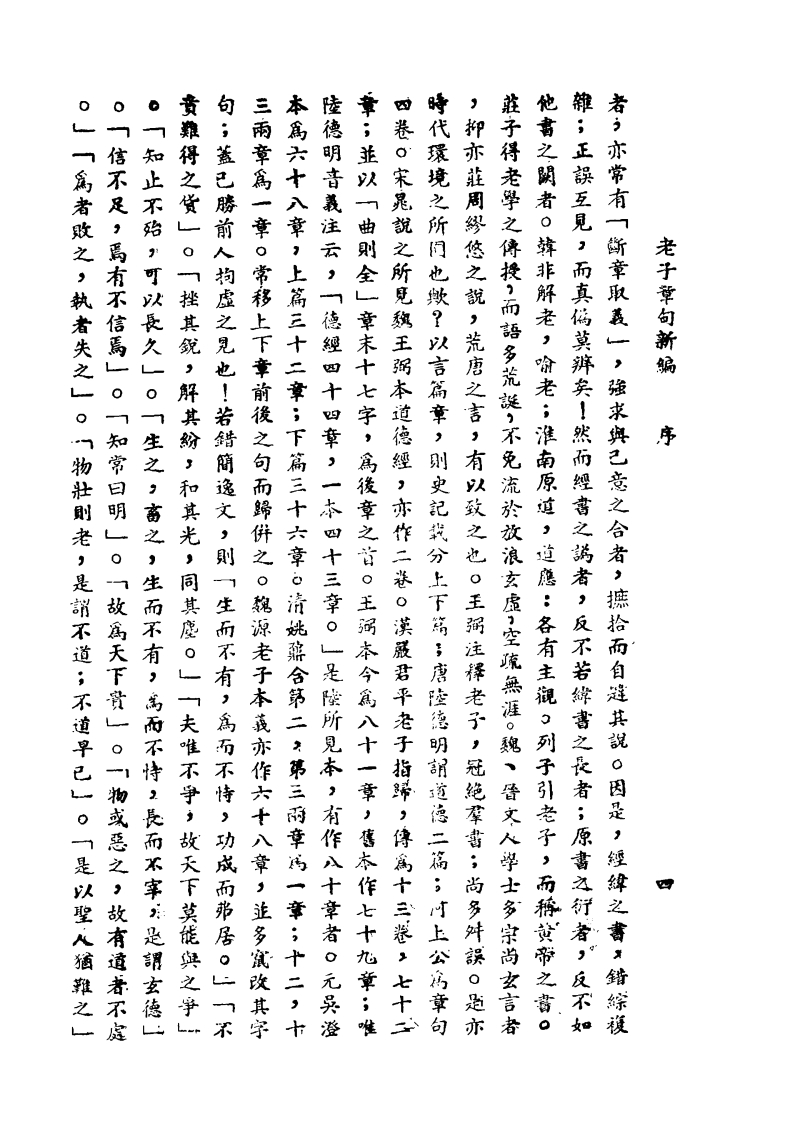 老子章句新編　序　四
者；亦常有「斷章取義」，強求與己意之合者，摭拾而自逞其說。因是，經緯之書，錯綜複
雜；正誤互見，而真偽莫辨矣！然而經書之譌者，反不若緯書之長者；原書之衍者，反不如
他書之闕者。韓非解老，喻老；淮南原道，道應：各有主觀。列子引老子，而稱黃帝之書。
莊子得老學之傳授，而語多荒誕，不免流於放浪玄虛，空疏無涯。魏、晉文人學士多宗尚玄言者
，抑亦莊周繆悠之說，荒唐之言，有以致之也。王弼注釋老子，冠絕羣書；尚多舛誤。是亦
時代環境之所囿也歟？以言篇章，則史記栽分上下篇；唐陸德明謂道德二篇；河上公為章句
四卷。宋晁說之所見魏王弼本道德經，亦作二卷。漢嚴君平老子指歸，傳為十三卷，七十二
章；並以「曲則全」章末十七字，為後章之首。王弼本今為八十一章，舊本作七十九章；唯
陸德明音義注云，「德經四十四章，一本四十三章。」是陸所見本，有作八十章者。元吳澄
本為六十八章，上篇三十二章；下篇三十六章。清姚鼐合第二，第三兩章為一章；十二，十
三兩章為一章。常移上下章前後之句而歸併之。魏源老子本義亦作六十八章，並多竄改其字
句；蓋已勝前人拘虛之見也！若錯簡逸文，則「生而不有，為而不恃，功成而弗居。」「不
貴難得之貨」。「挫其銳，解其紛，和其光，同其塵。」「夫唯不爭，故天下莫能與之爭」
。「知止不殆，可以長久」。「生之，畜之，生而不有，為而不恃，長而不宰，是謂玄德」
。「信不足，焉有不信焉」。「知常曰明」。「故為天下貴」。「物或惡之，故有道者不處
。」「為者敗之，執者失之」。「物壯則老，是謂不道；不道早已」。「是以聖人猶難之」